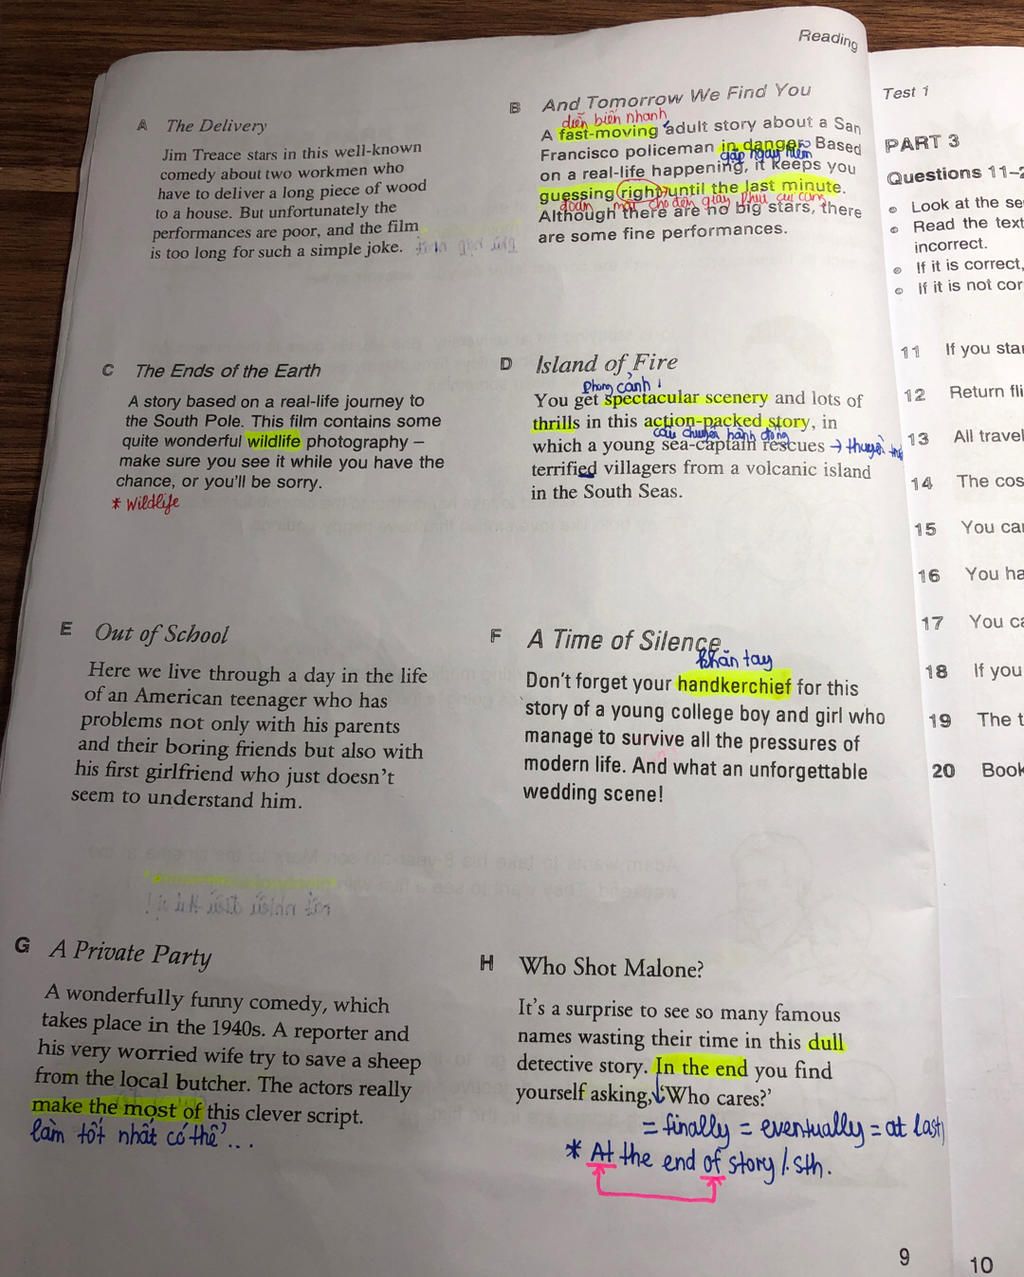 Reading
A The Delivery
Jim Treace stars in this well-known
comedy about two workmen who
have to deliver a long piece of wood
to a house. But unfortunately the
performances are poor, and the film
is too long for such a simple joke.
B And Tomorrow We Find You
diễn biến nhanh
A fast-moving adult story about a San
Francisco policeman in danger. Based
gặp nguy hiểm
on a real-life happening, it keeps you
guessing right until the last minute.
đoán mãi cho đến giây phút cuối cùng
Although there are no big stars, there
are some fine performances.
C The Ends of the Earth
A story based on a real-life journey to
the South Pole. This film contains some
quite wonderful wildlife photography –
make sure you see it while you have the
chance, or you'll be sorry.
* Wildlife
D Island of Fire
phong cảnh
You get spectacular scenery and lots of
thrills in this action-packed story, in
câu chuyện hành động
which a young sea-captain rescues → thuyền
terrified villagers from a volcanic island
in the South Seas.
E Out of School
Here we live through a day in the life
of an American teenager who has
problems not only with his parents
and their boring friends but also with
his first girlfriend who just doesn't
seem to understand him.
F A Time of Silence
khăn tay
Don't forget your handkerchief for this
story of a young college boy and girl who
manage to survive all the pressures of
modern life. And what an unforgettable
wedding scene!
G A Private Party
A wonderfully funny comedy, which
takes place in the 1940s. A reporter and
his very worried wife try to save a sheep
from the local butcher. The actors really
make the most of this clever script.
làm tốt nhất có thể ...
H Who Shot Malone?
It's a surprise to see so many famous
names wasting their time in this dull
detective story. In the end you find
yourself asking, 'Who cares?'
= finally = eventually = at last
* At the end of story / sth.
9
Test 1
PART 3
Questions 11–2
Look at the se
Read the text
incorrect.
If it is correct,
If it is not cor
11 If you star
12 Return fli
13 All travel
14 The cos
15 You can
16 You ha
17 You ca
18 If you
19 The t
20 Book
10